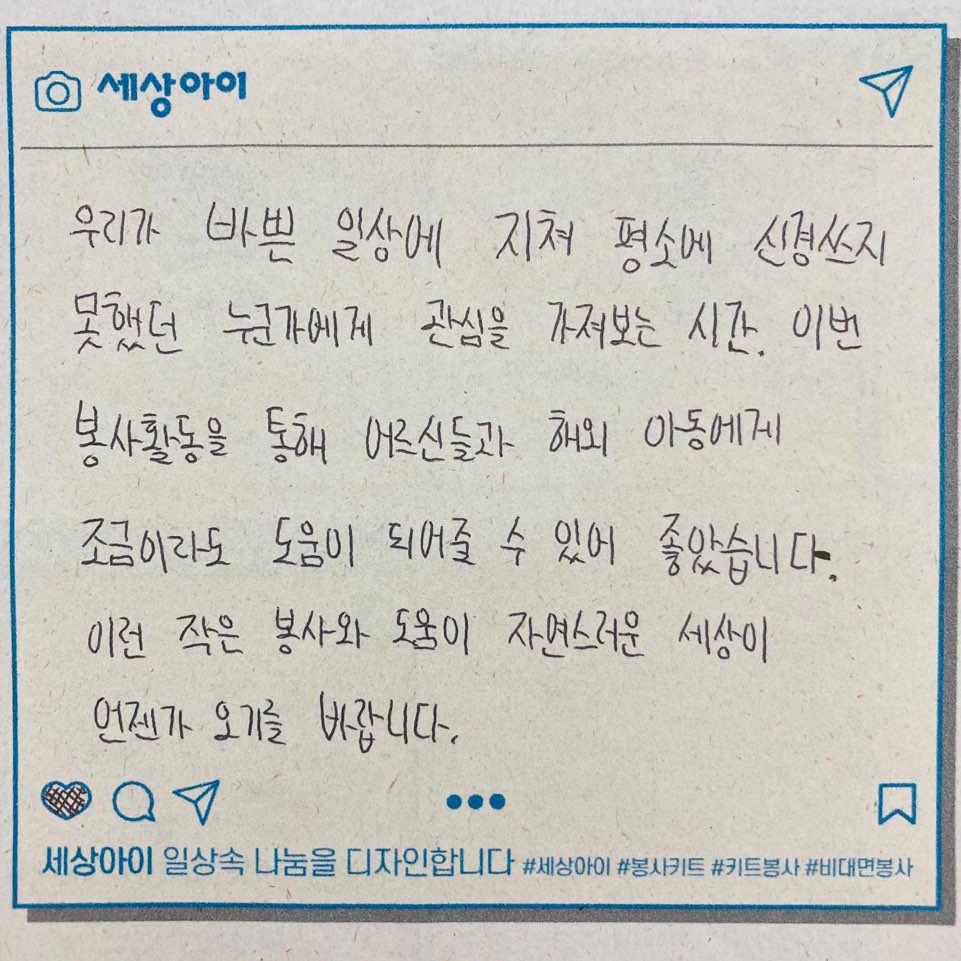 세상아이
우리가 바쁜 일상에 지쳐 평소에 신경쓰지
못했던 누군가에게 관심을 가져보는 시간. 이번
봉사활동을 통해 어르신들과 해외 아동에게
조금이라도 도움이 되어줄 수 있어 좋았습니다.
이런 작은 봉사와 도움이 자연스러운 세상이
언젠가 오기를 바랍니다.
세상아이 일상속 나눔을 디자인합니다 #세상아이 #봉사키트 #키트봉사 #비대면봉사